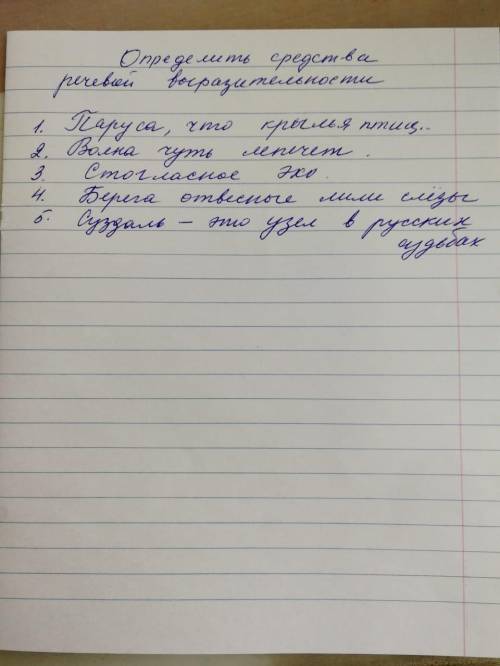 Определить средства
речевой выразительности
1. Паруса, что крылья птиц..
2. Волна чуть лепечет.
3. Стогласное эхо.
4. Берега отвесные лили слёзы
5. Суздаль – это узел в русских
судьбах